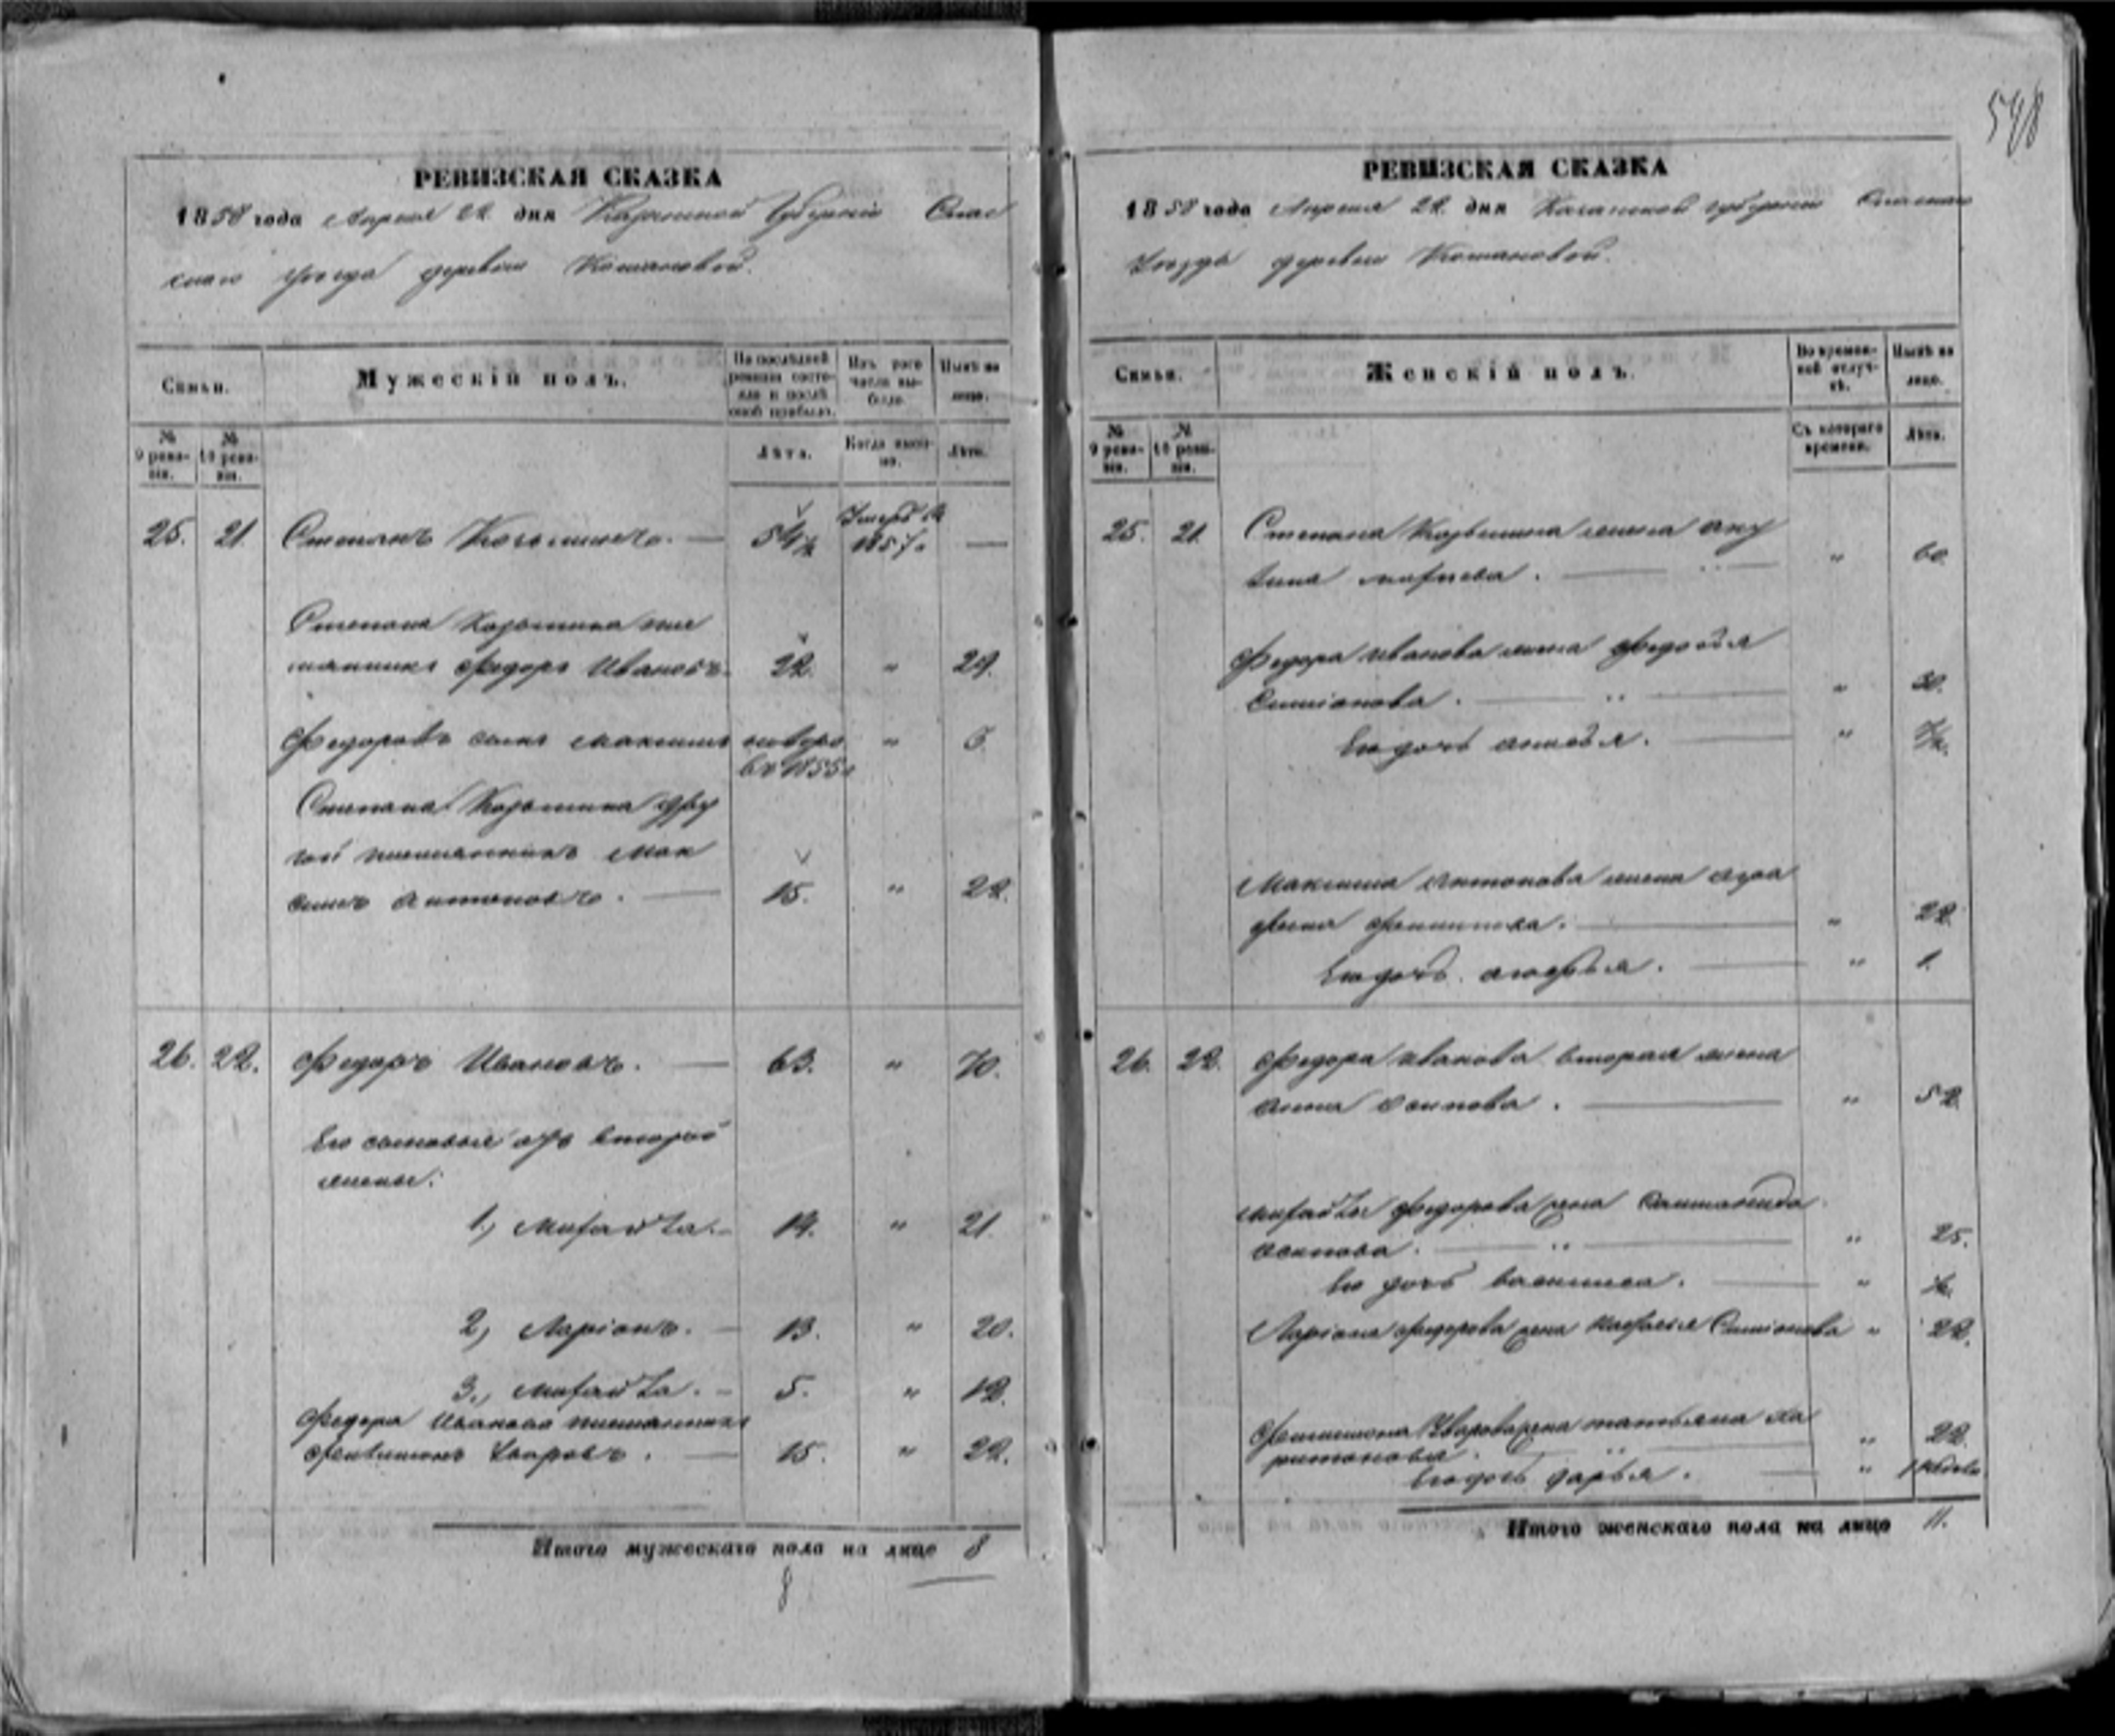 548
РЕВИЗСКАЯ СКАЗКА
1858 года Апреля 22 дня Казанской Губернии Спас
скаго уезда деревни
Семьи.
Мужескій полъ.
По последней ревизіи состояло и после оной прибыло.
Изъ того числа выбыло.
Ныне на лицо.
№ 9 ревизіи.
№ 10 ревизіи.
Лета.
Когда именно.
Лета.
25. 21. Степанъ Козьминъ. — 54 1857. —
Степана Козьмина пле
мянникъ Федоръ Ивановъ. 22. " 29.
Федоровъ сынъ Максимъ " 
въ 1855
Степана Козьмина дру
гой племянникъ Мак
симъ Антоновъ. — 15. " 22.
26. 22. Федоръ Ивановъ. — 63. " 70.
Его сыновья отъ второй
жены:
1, Михайла. 14. " 21.
2, Ларіонъ. — 13. " 20.
3, Михайла. 5. " 12.
Федора Иванова племянникъ
Уваровъ. — 15. " 22.
Итого мужескаго пола на лицо 8
8
РЕВИЗСКАЯ СКАЗКА
1858 года Апреля 22 дня Казанской губерніи Спаскаго
Уезда деревни
Семьи.
Женскій полъ.
Во временной отлучке.
Ныне на лицо.
№ 9 ревизіи.
№ 10 ревизіи.
Съ котораго времени.
Лета.
25. 21. Степана Козьмина жена Аку
лина " 60.
Федора Иванова жена Федосья
Симіонова. — " 30.
Его дочь "
Максима Антонова жена Агра
фена " 22.
Его дочь " 1.
26. 22. Федора Иванова вторая жена
Анна Осипова. — " 52.
Михайлы Федорова жена
Осипова. — " 25.
Его дочь Василиса. — "
Ларіона Федорова жена Наталья Симіонова " 22.
Уварова жена Татьяна Ха
ритонова. — " 22.
Его дочь Дарья. — "
Итого женскаго пола на лицо 11.